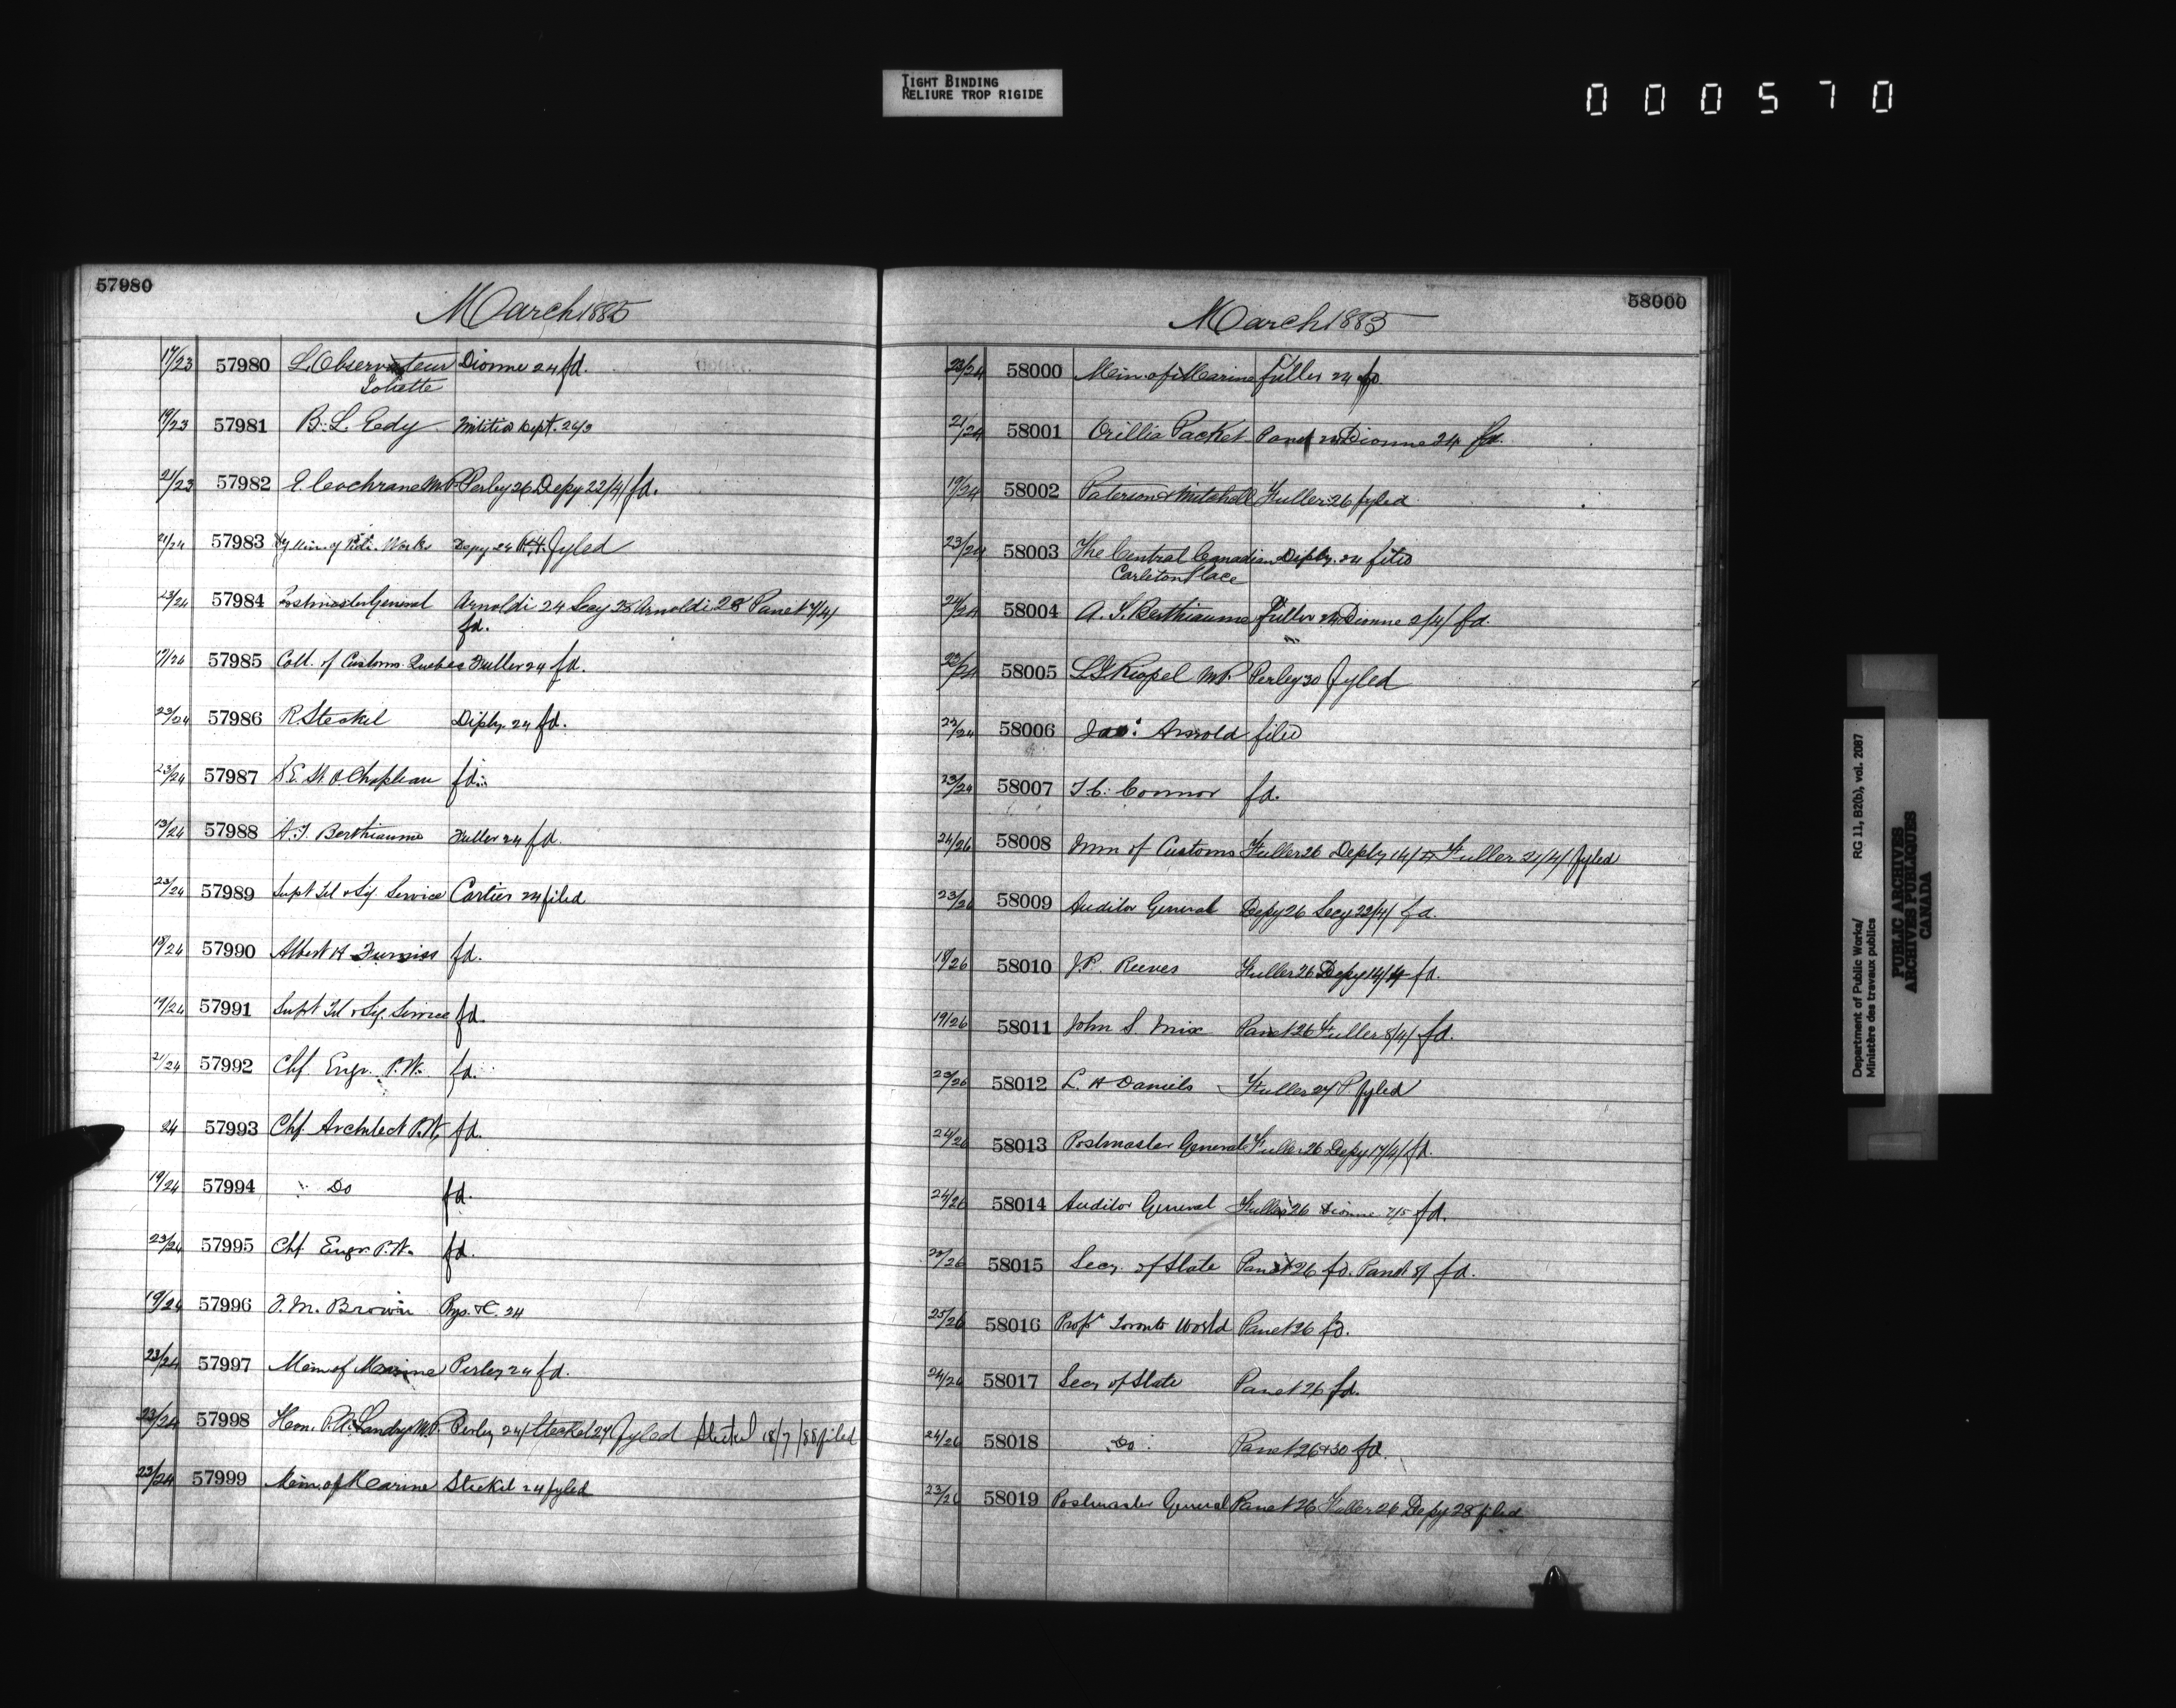 TIGHT BINDING
RELIURE TROP RIGIDE
000570
57980
March 1885
17/23 57980 L'Observateur Dionne 24 fd.
Joliette
19/23 57981 B. L. Eedy Militia Dept. 24/3
21/23 57982 E. Cochrane M.P. Perley 26 Depy 22/4/ fd.
21/24 57983 Dy Min. of Pub. Works Depy 24 fyled
23/24 57984 Postmaster General Arnoldi 24 Secy 28 Arnoldi 28 Panet 7/4/
fd.
17/24 57985 Coll. of Customs Quebec Fuller 24 fd.
23/24 57986 R Steckel Diply. 24 fd.
23/24 57987 S. E. St. O. Chapleau fd.
13/24 57988 A. T. Berthiaume Fuller 24 fd.
23/24 57989 Supt Tel & Sig. Service Cartier 24 filed
18/24 57990 Albert H Furniss fd.
19/24 57991 Supt Tel & Sig. Service fd.
21/24 57992 Chf. Engr. P.W. fd.
24 57993 Chf. Architect P.W. fd.
19/24 57994 Do fd.
23/24 57995 Chf. Engr. P.W. fd.
19/24 57996 J. M. Brown Rys. & C. 24
23/24 57997 Min. of Marine Perley 24 fd.
23/24 57998 Hon. P. A. Landry M.P. Perley 24/ Steckel 27/ fyled Steckel 18/7/88 filed
23/24 57999 Min. of Marine Steckel 24 fyled
58000
March 1885
23/24 58000 Min. of Marine Fuller 24 fd.
21/24 58001 Orillia Packet Panet 24 Dionne 24 fd.
19/24 58002 Paterson & Mitchell Fuller 26 fyled
23/24 58003 The Central Canadian Diply. 24 filed
Carleton Place
24/24 58004 A. T. Berthiaume Fuller 24 Dionne 2/4/ fd.
23/24 58005 Riopel M.P. Perley 30 fyled
23/24 58006 Arnold filed
23/24 58007 J. C. Connor fd.
24/26 58008 Min of Customs Fuller 26 Deply 14/4 Fuller 21/4/ fyled
23/26 58009 Auditor General Depy 26 Secy 22/4/ fd.
18/26 58010 J. P. Reeves Fuller 26 Depy 14/4 fd.
19/26 58011 John S Mix Panet 26 Fuller 8/4/ fd.
23/26 58012 L. H Daniels Fuller 27 P. fyled
24/26 58013 Postmaster General Fuller 26 Depy 17/4/ fd.
24/26 58014 Auditor General Fuller 26 Dionne 7/5 fd.
23/26 58015 Secy. of State Panet 26 fd. Panet 8/ fd.
25/26 58016 Propr Toronto World Panet 26 fd.
24/26 58017 Secy of State Panet 26 fd.
24/26 58018 Do. Panet 26 & 30 fd.
23/26 58019 Postmaster General Panet 26 Fuller 26 Depy 28 filed
Department of Public Works/ RG 11, B2(b), vol. 2087
Ministère des travaux publics
PUBLIC ARCHIVES
ARCHIVES PUBLIQUES
CANADA